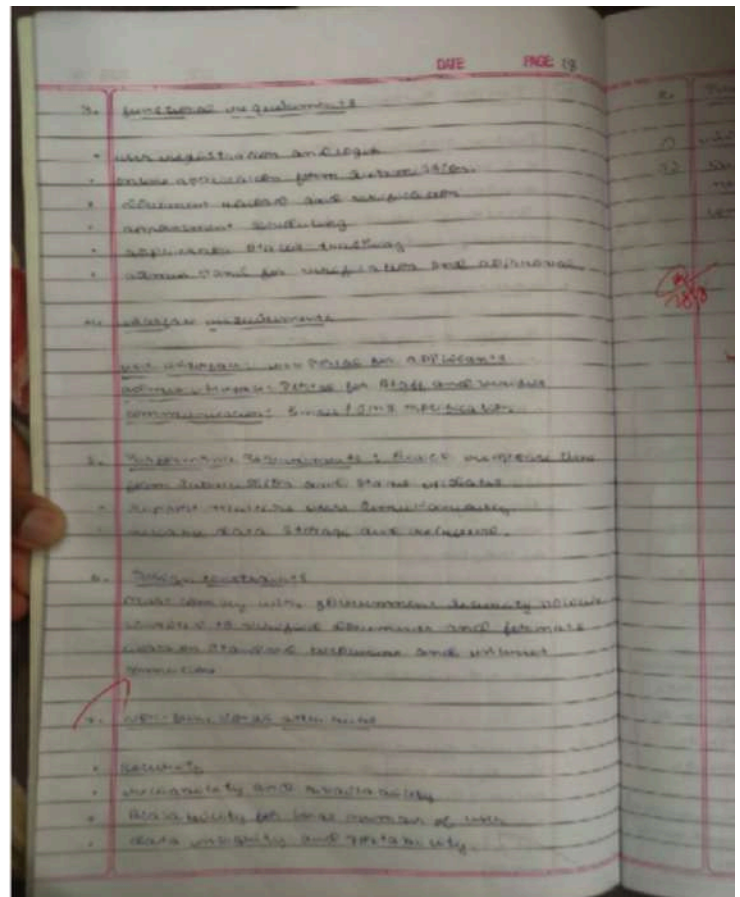 DATE PAGE
3. Functional requirements
• user registration and login
• online application form submission.
• document upload and verification
• appointment scheduling
• application status tracking
• admin panel for verification and approval
4. interface requirements
user interface: web portal for applicants
admin interface: portal for staff and
communication: Email / SMS notification.
5. Performance Requirements: quick response time
form submission and status updates
• support multiple users simultaneously.
• reliable data storage and retrieval.
6. Design constraints
must comply with government security policies
limited to verified documents and formats
works on standard browsers and internet
connection
7. Non-functional attributes
• security
• reliability and availability
• scalability for large number of users
• data integrity and portability.
2.
1)
2)